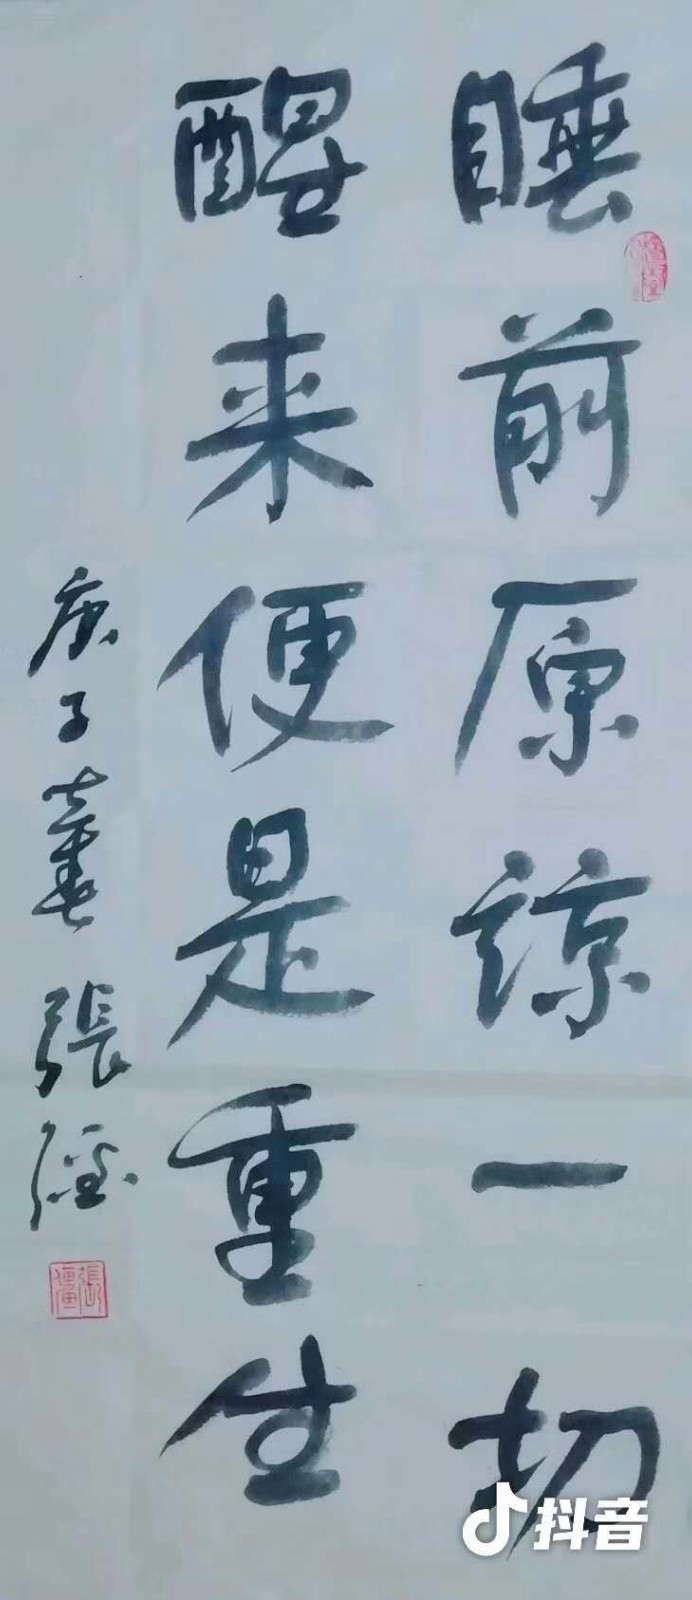 睡前原谅一切
醒来便是重生
庚子春 張
抖音